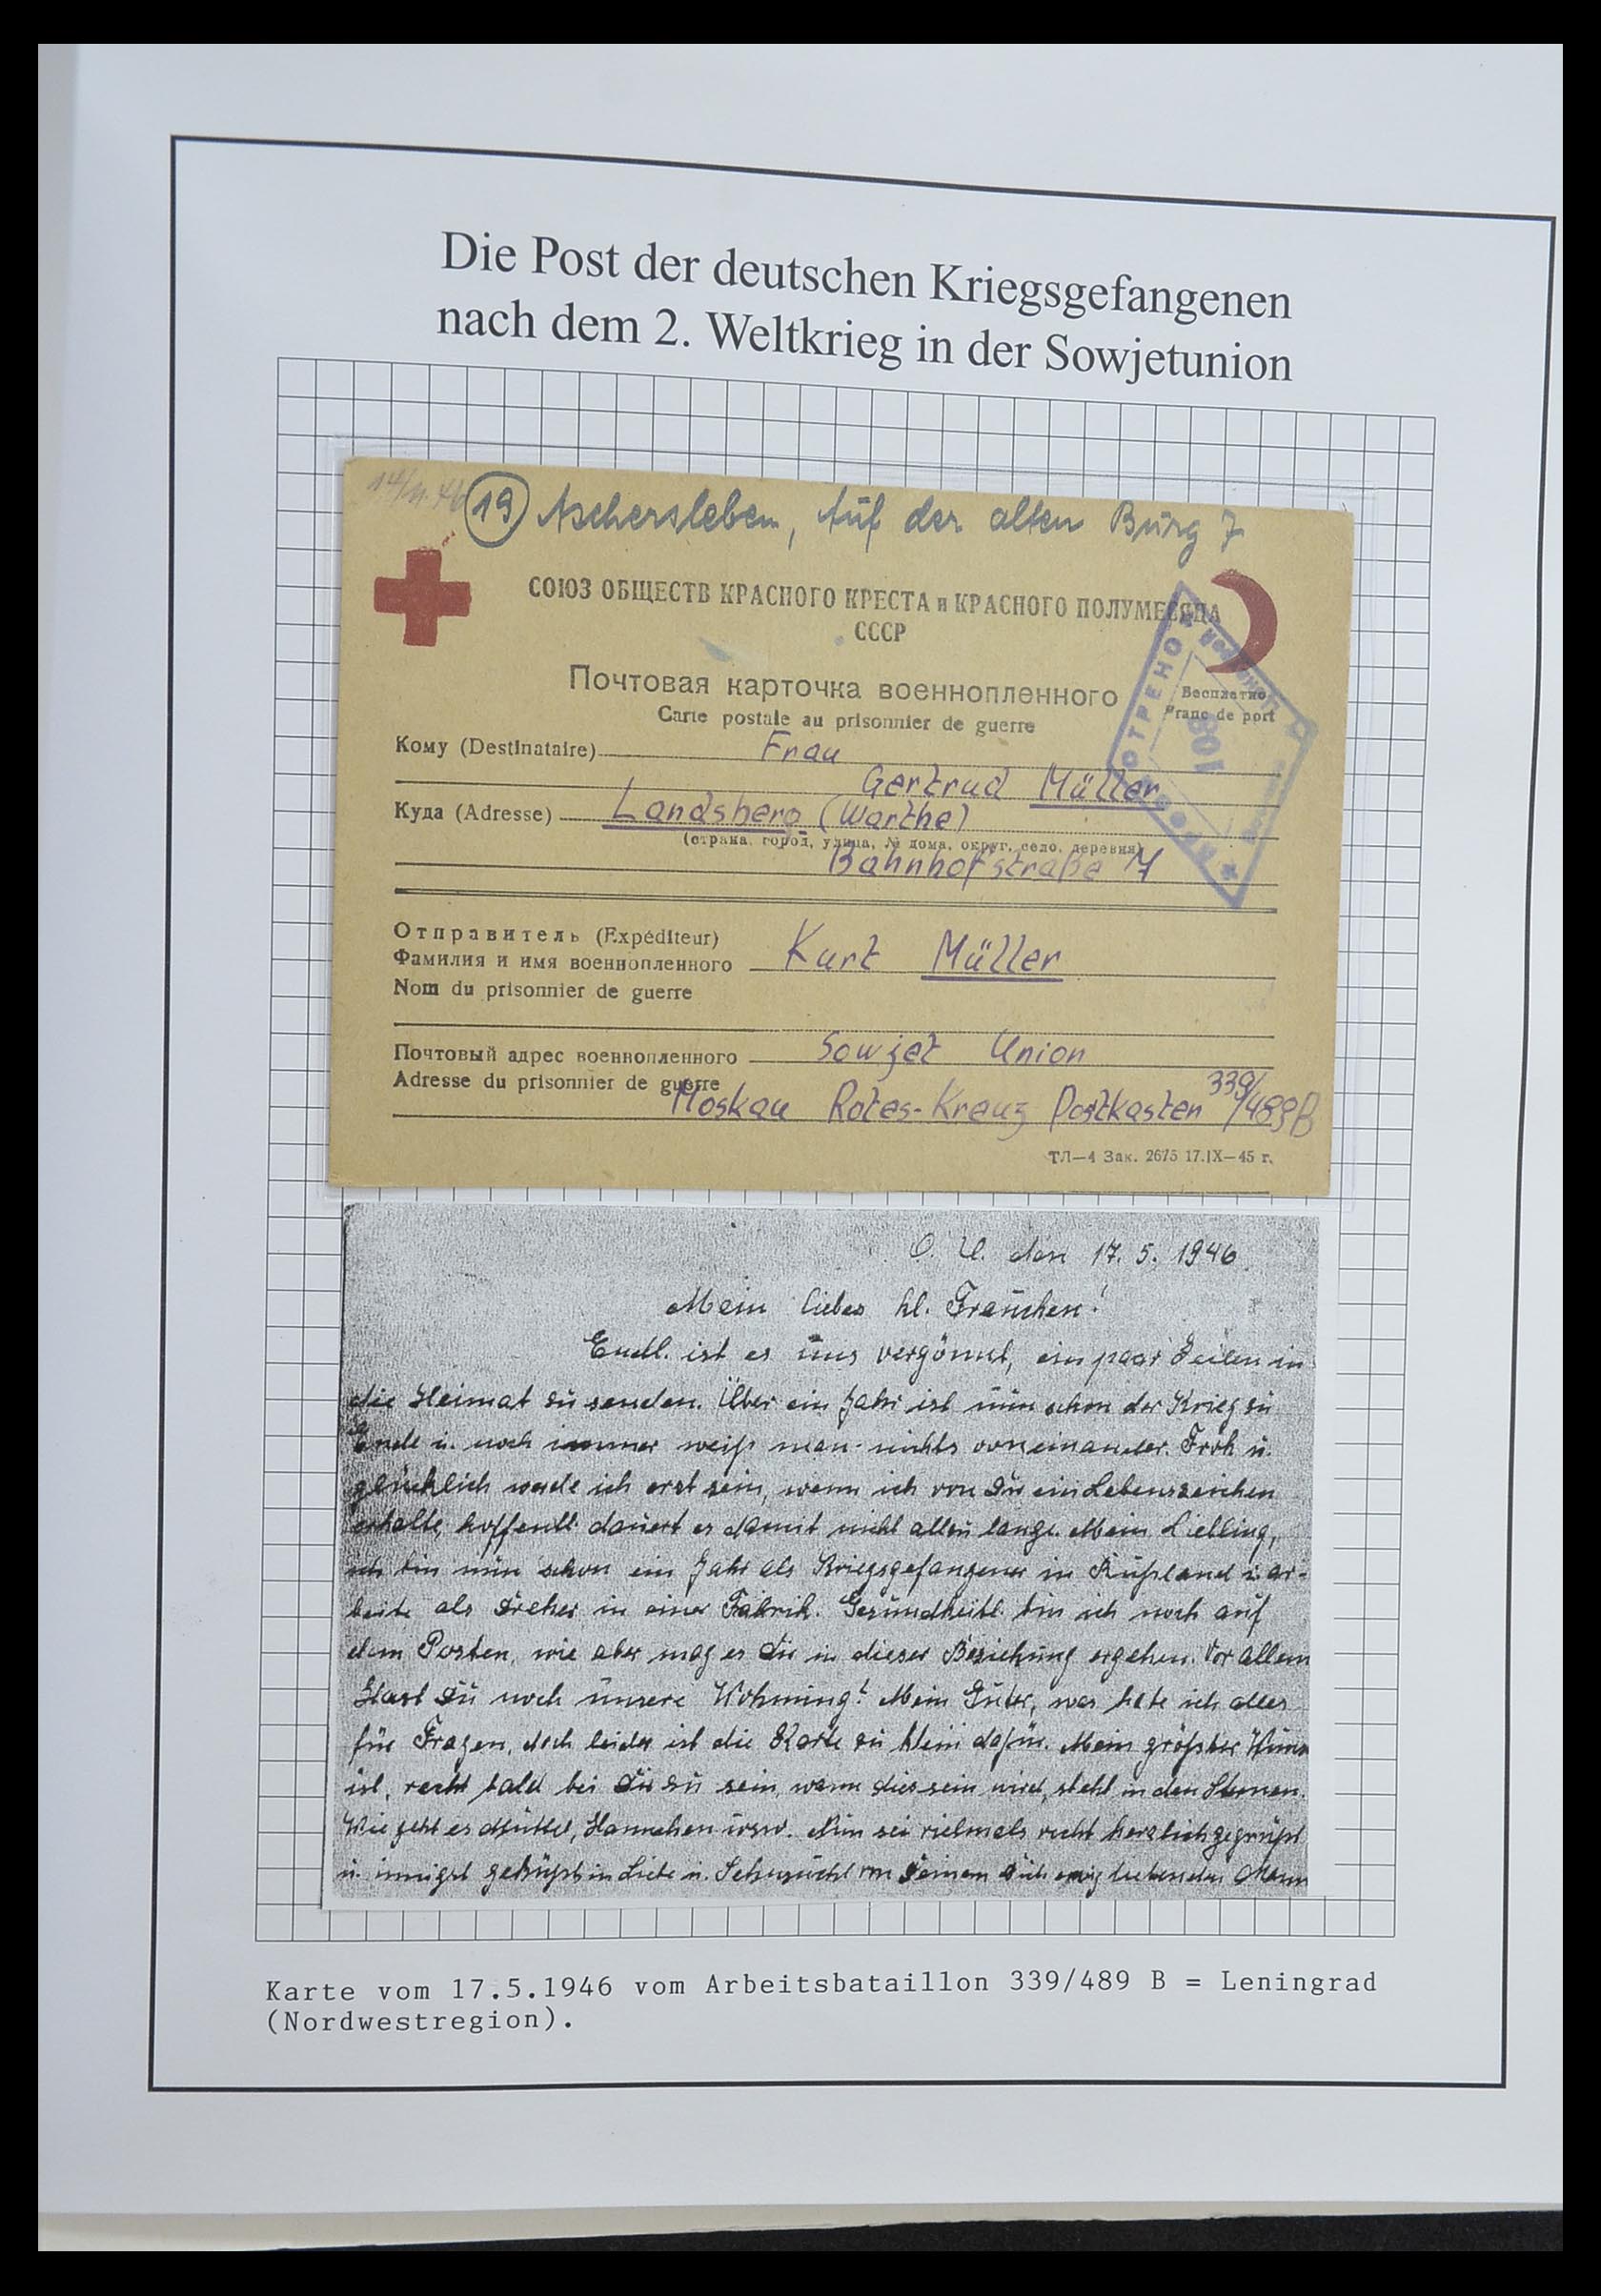 Die Post der deutschen Kriegsgefangenen
nach dem 2. Weltkrieg in der Sowjetunion
14/11.46
19 Aschersleben, Auf der alten Burg 7
СОЮЗ ОБЩЕСТВ КРАСНОГО КРЕСТА и КРАСНОГО ПОЛУМЕСЯЦА
СССР
Почтовая карточка военнопленного
Carte postale au prisonnier de guerre
Бесплатно
Franc de port
Кому (Destinataire) Frau
Gertrud Müller
Куда (Adresse) Landsberg (Warthe)
(страна, город, улица, № дома, округ, село, деревня)
Bahnhofstraße 7
Отправитель (Expéditeur)
Фамилия и имя военнопленного Kurt Müller
Nom du prisonnier de guerre
Почтовый адрес военнопленного Sowjet Union
Adresse du prisonnier de guerre
Moskau Rotes-Kreuz Postkasten 339/489B
ТЛ—4 Зак. 2675 17.IX—45 г.
108
O. U. den 17. 5. 1946.
Mein liebes kl. Frauchen!
Endl. ist es uns vergönnt, ein paar Zeilen in
die Heimat zu senden. Über ein Jahr ist nun schon der Krieg zu
Ende u. noch immer weiß man nichts voneinander. Froh u.
glücklich werde ich erst sein, wenn ich von Dir ein Lebenszeichen
erhalte, hoffentl. dauert es damit nicht allzu lange. Mein Liebling,
ich bin nun schon ein Jahr als Kriegsgefangener in Rußland u. ar-
beite als Dreher in einer Fabrik. Gesundheitl. bin ich noch auf
dem Posten, wie aber mag es Dir in dieser Beziehung ergehen. Vor allem
Hast Du noch unsere Wohnung? Mein Guter, was hate ich alles
für Fragen, doch leider ist die Karte zu klein dafür. Mein größter
ist, recht bald bei Dir zu sein, wann dies sein wird, steht in den Sternen.
Wie geht es Hannchen usw. Nun sei vielmals recht herzlich gegrüßt
u. innigst geküßt in Liebe u. Sehnsucht von Deinem Dich ewig liebenden Mann
Karte vom 17.5.1946 vom Arbeitsbataillon 339/489 B = Leningrad
(Nordwestregion).